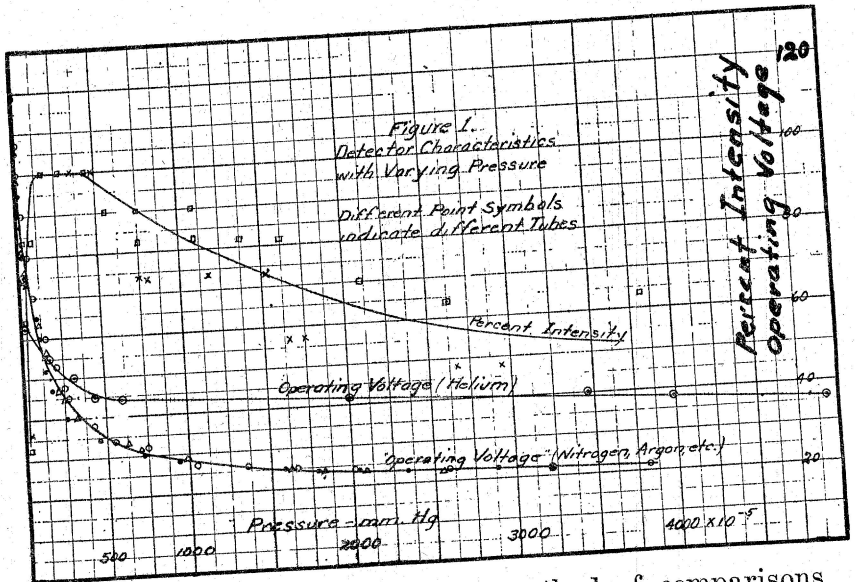 Figure 1.
Detector Characteristics
with Varying Pressure
Different Point Symbols
indicate different Tubes
Percent Intensity
Operating Voltage
120
100
80
60
40
20
Percent Intensity
Operating Voltage (Helium)
"Operating Voltage" (Nitrogen, Argon, etc.)
Pressure - mm. Hg
500 1000 2000 3000 4000 x 10⁻⁵
of comparisons